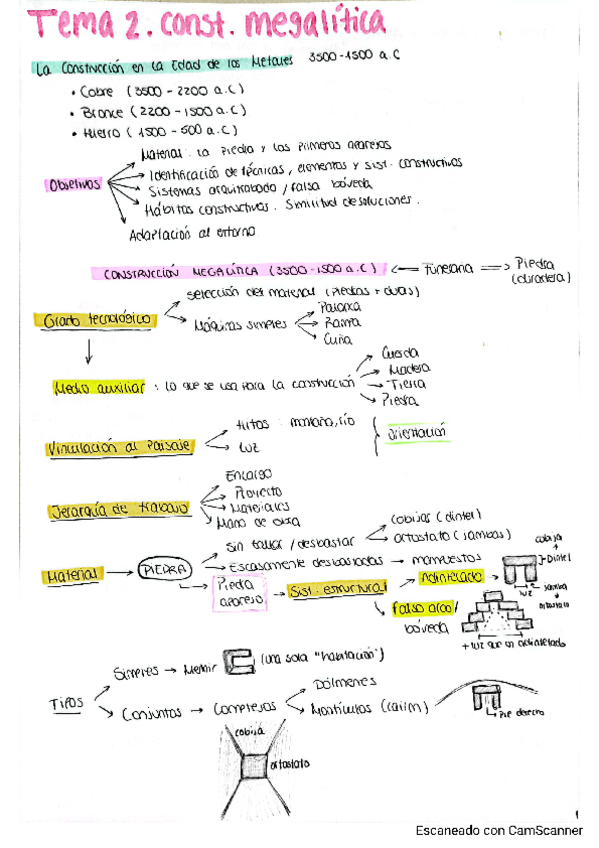 Tema 2. const. megalítica
La Construcción en la Edad de los Metales 3500-1500 a.C
• Cobre (3500 - 2200 a.C)
• Bronce (2200 - 1500 a.C)
• Hierro (1500 - 500 a.C)
Material: la Piedra y los primeros aparejos
Identificación de técnicas, elementos y sist. constructivos
Objetivos
Sistemas arquitrabado / falsa bóveda
Hábitos constructivos. Similitud de soluciones.
Adaptación al entorno
CONSTRUCCIÓN MEGALÍTICA (3500-1500 a.C) Funeraria Piedra
(duradera)
selección del material (piedras + duras)
Grado tecnológico
Máquinas simples
Palanca
Rampa
Cuña
Medio auxiliar: lo que se usa para la construcción
Cuerda
Madera
Tierra
Piedra
Vinculación al Paisaje
hitos: montaña, río
luz
orientación
Jerarquía de trabajo
Encargo
Proyecto
Materiales
Mano de obra
Material PIEDRA
Sin tallar / desbastar
cobijas (dintel)
ortostato (jambas)
Escasamente desbastadas mampuestos
Piedra
aparejo
Sist. estructural
Adintelado
falso arco/
bóveda
cobija
Dintel
luz
jamba
ortostato
+ luz que en adintelado
TIPOS
Simples Menhir (una sola "habitación")
Conjuntos Complejos
Dólmenes
Montículos (cairn)
Pie derecho
cobija
ortostato
1
Escaneado con CamScanner